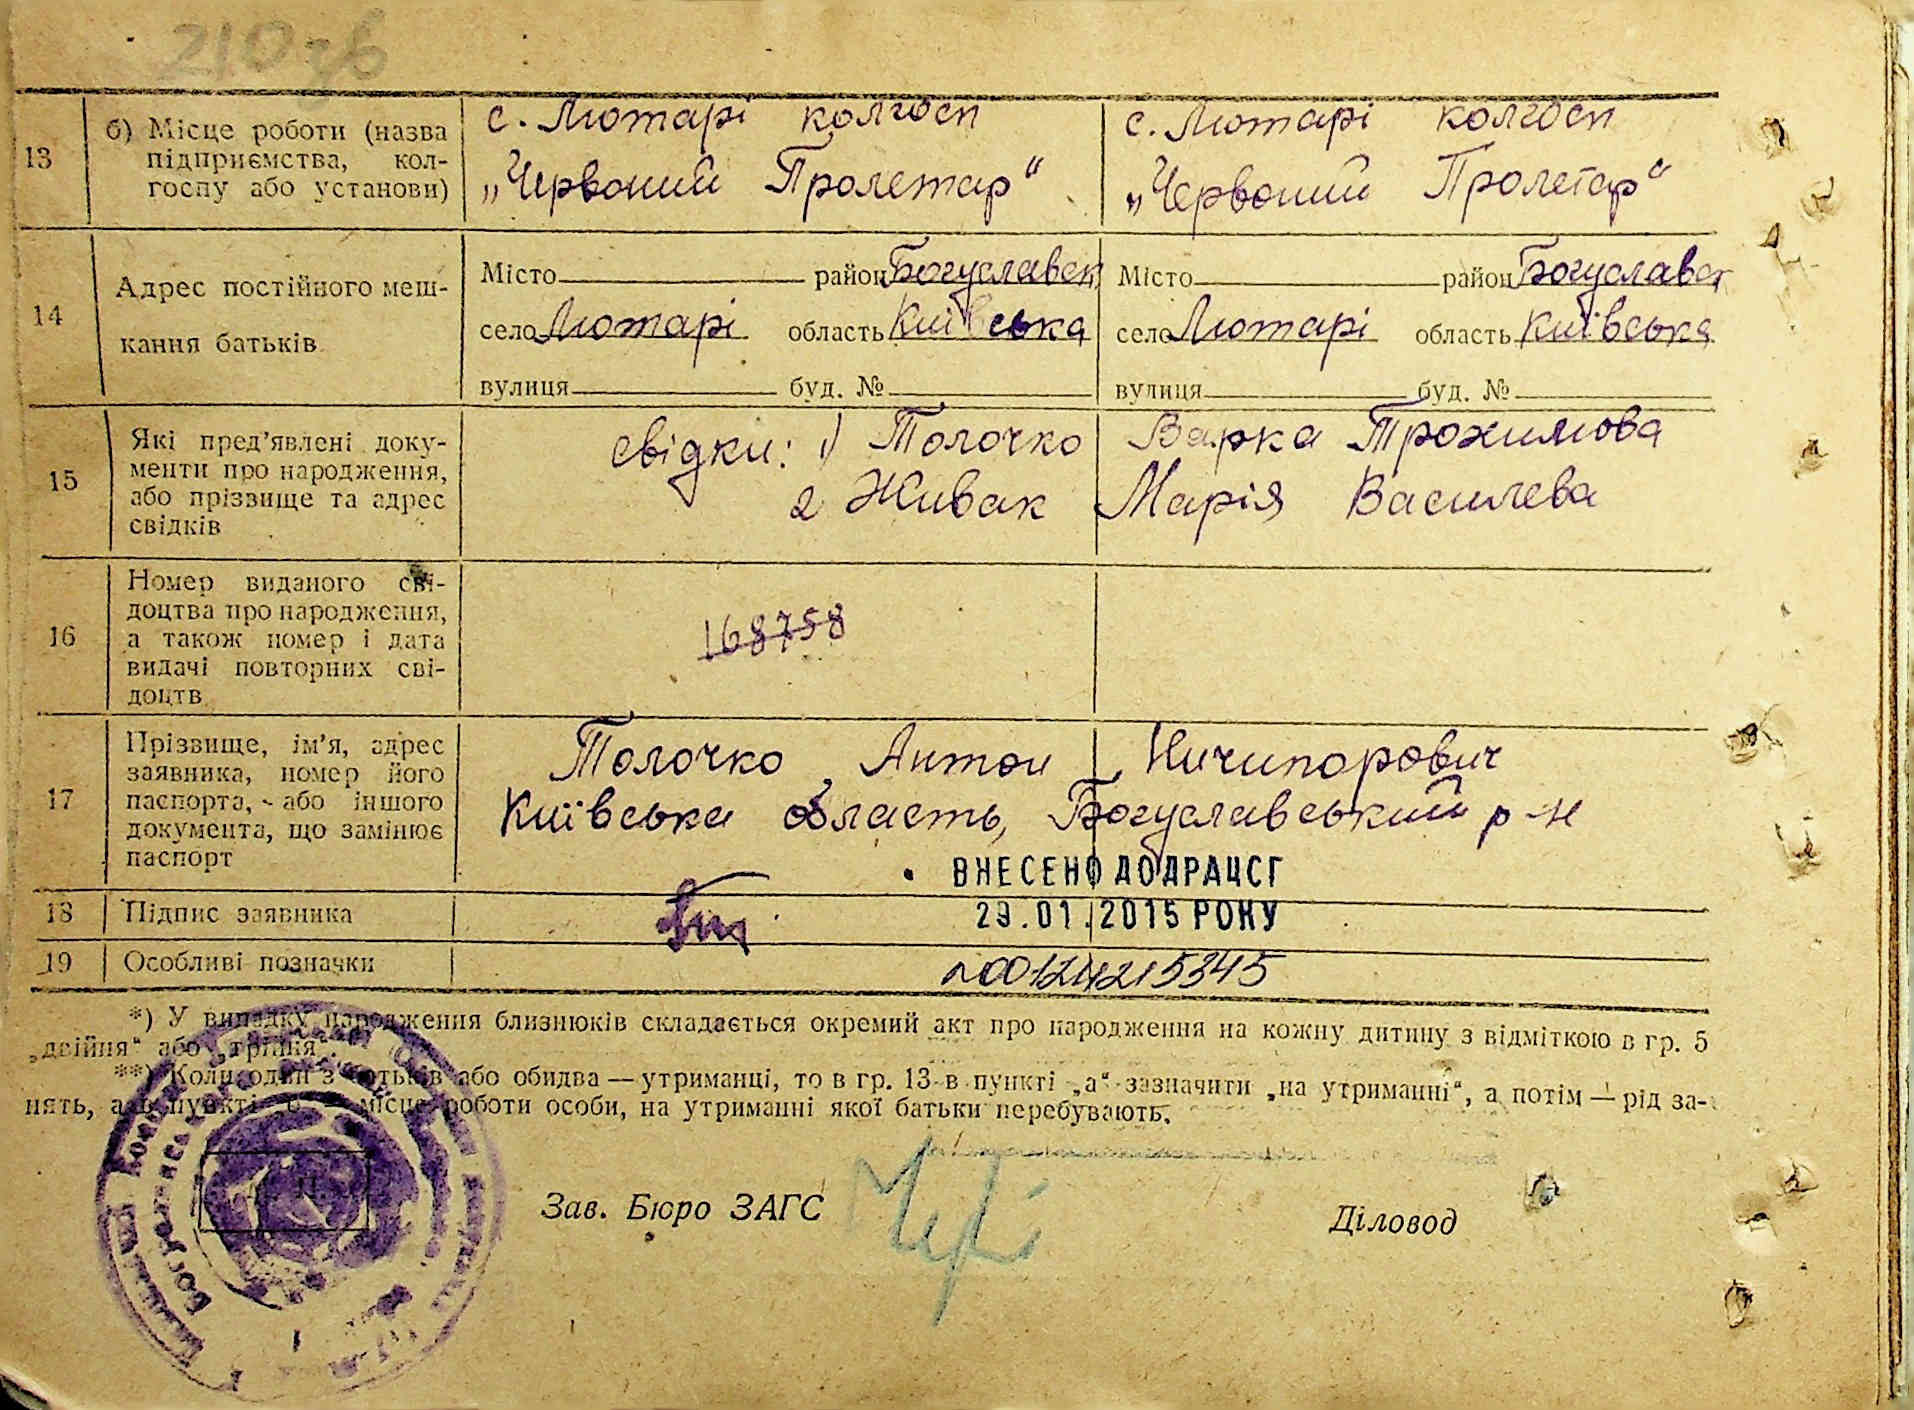 210 зв
13
б) Місце роботи (назва
підприємства, кол-
госпу або установи)
с. Лютарі колгосп
„Червоний Пролетар“
с. Лютарі колгосп
„Червоний Пролетар“
14
Адрес постійного меш-
кання батьків
Місто район Богуславськ
село Лютарі область Київська
вулиця буд. №
Місто район Богуславськ
село Лютарі область Київська
вулиця буд. №
15
Які пред’явлені доку-
менти про народження,
або прізвище та адрес
свідків
свідки: 1) Толочко Варка Трохимова
2 Живак Марія Василева
16
Номер виданого сві-
доцтва про народження,
а також номер і дата
видачі повторних сві-
доцтв
168758
17
Прізвище, ім’я, адрес
заявника, номер його
паспорта, або іншого
документа, що замінює
паспорт
Толочко Антон Ничипорович
Київська область, Богуславський р-н
ВНЕСЕНО ДО ДРАЦСГ
18
Підпис заявника
29.01.2015 РОКУ
19
Особливі позначки
00124215345
*) У випадку народження близнюків складається окремий акт про народження на кожну дитину з відміткою в гр. 5
„двійня“ або „трійня“.
**) Коли один з батьків або обидва — утриманці, то в гр. 13 в пункті „а“ зазначити „на утриманні“, а потім — рід за-
нять, а в пункті „б“ — місце роботи особи, на утриманні якої батьки перебувають.
Зав. Бюро ЗАГС
Діловод